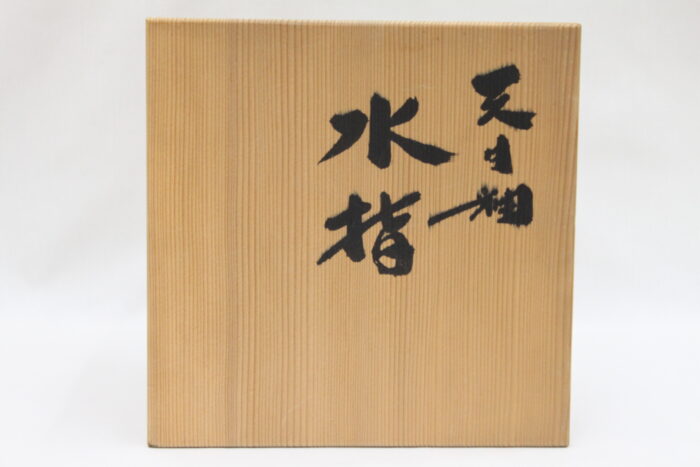 天目釉
水指